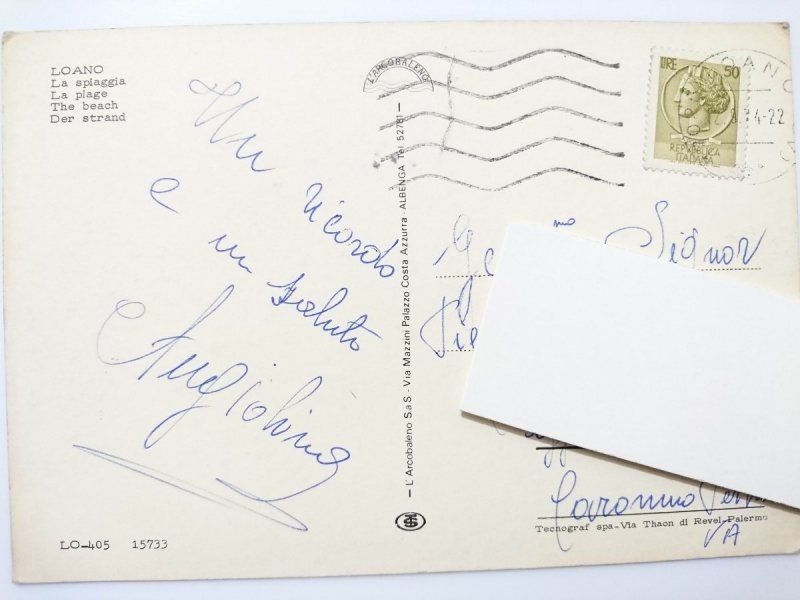 LOANO
La spiaggia
La plage
The beach
Der strand
Un ricordo
e un saluto
Angiolina
LO-405 15733
L'ARCOBALENO
— L'Arcobaleno S.a.S - Via Mazzini Palazzo Costa Azzurra - ALBENGA Tel 52781 —
LIRE 50
REPUBBLICA
ITALIANA
LOANO
4-22
Signor
Caronno
VA
Tecnograf spa-Via Thaon di Revel-Palermo